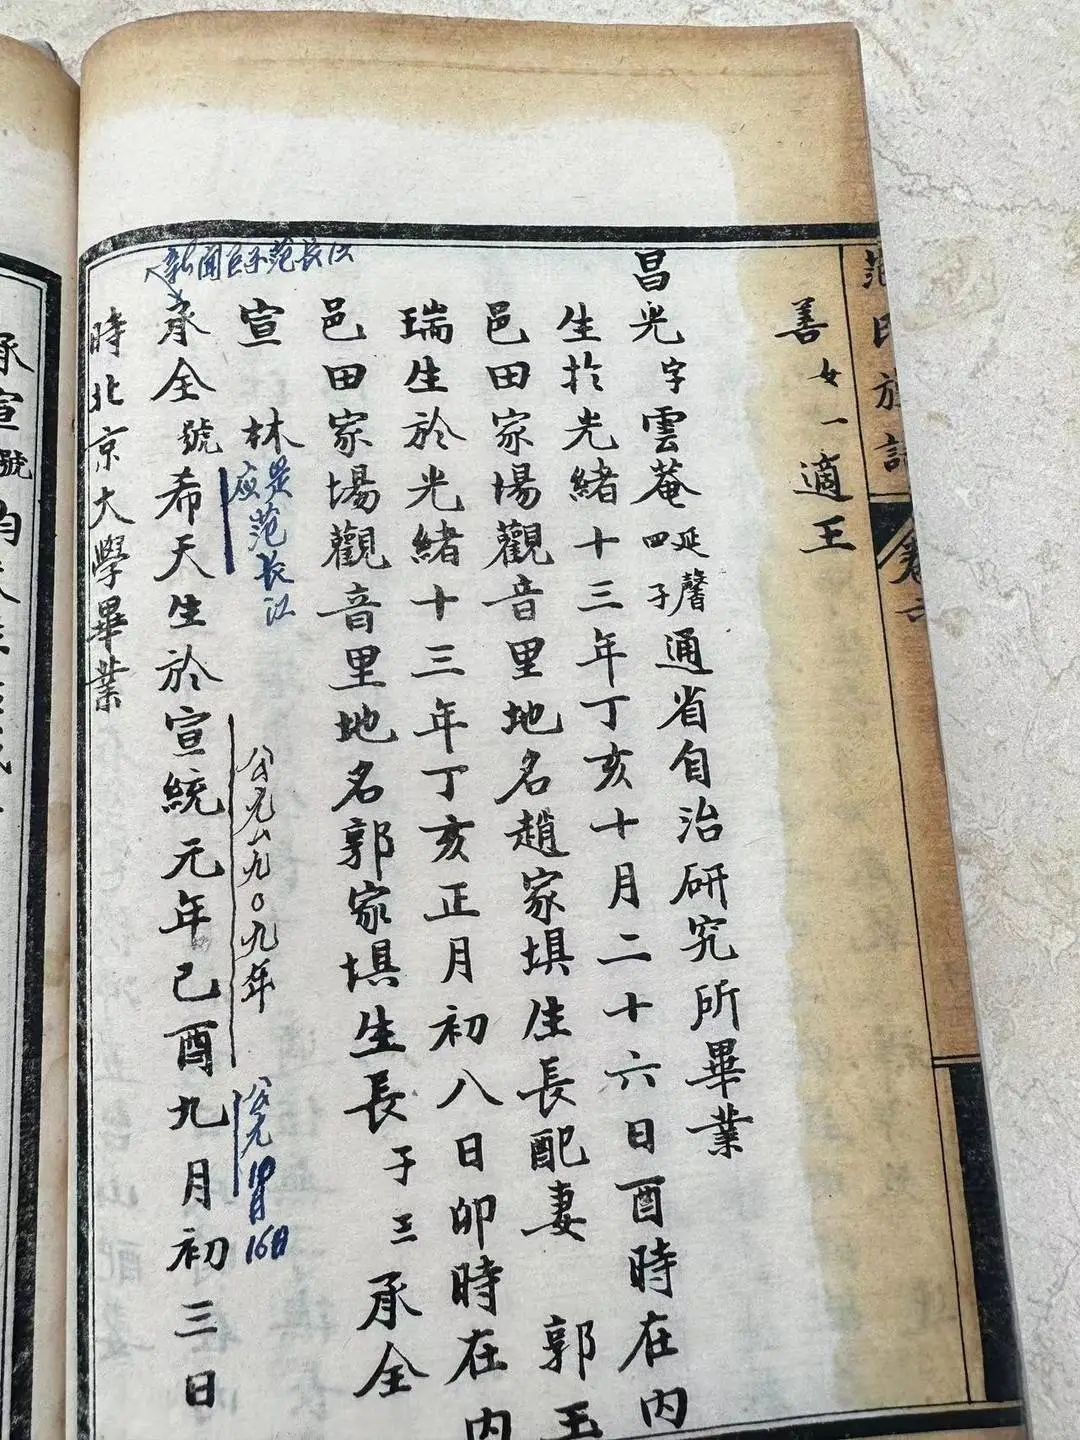 范氏族譜
卷六
善 女一適王
昌光字雲菴延馨四子通省自治研究所畢業
生於光緒十三年丁亥十月二十六日酉時在內
邑田家場觀音里地名趙家埧生長配妻 郭玉
瑞生於光緒十三年丁亥正月初八日卯時在内
邑田家場觀音里地名郭家埧生長子三承全
宣 林
应是范长江
新闻巨子范长江
承全號希天生於宣統元年己酉九月初三日
公元一九〇九年
公元10月16日
時北京大學畢業
承宣號